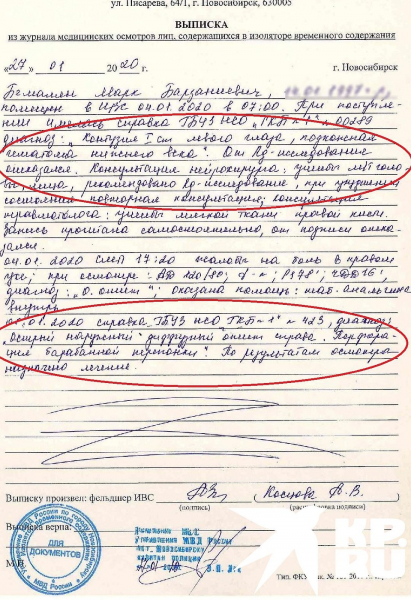 ул. Писарева, 64/1, г. Новосибирск, 630005
ВЫПИСКА
из журнала медицинских осмотров лиц, содержащихся в изоляторе временного содержания
«27» 01 2020 г. г. Новосибирск
Марк
помещен в ИВС 04.01.2020 в 07:00. При поступле-
нии имелась справка ГБУЗ НСО "ГКБ №1" № 00289
диагноз: "Контузия I ст левого глаза, подкожная
гематома нижнего века". От Rg-исследования
отказался. Консультация нейрохирурга: ушибы мягк голо-
вы, лица, рекомендовано Rg-исследование, при ухудшении
состояния повторная консультация; консультация
травматолога: ушибы мягкой ткани правой кисти.
Запись прочитана самостоятельно, от подписи отка-
зался.
04.01.2020 17:20 жалобы на боль в правом
ухе; при осмотре: АД 120/80; Ps 78'; ЧДД 16',
диагноз: "О. отит"; оказана помощь: таб. анальгина
внутрь
01.2020 справка ГБУЗ НСО ГКБ №1 № 423, диагноз:
"Острый наружный диффузный отит справа. Перфора-
ция барабанной перепонки". По результатам осмотра
назначено лечение.
Выписку произвел: фельдшер ИВС
(подпись) (расшифровка подписи)
Выписка верна:
ДЛЯ ДОКУМЕНТОВ
Начальник ИВС
Управления МВД России
по г. Новосибирску
капитан полиции
М.П.
KP.RU